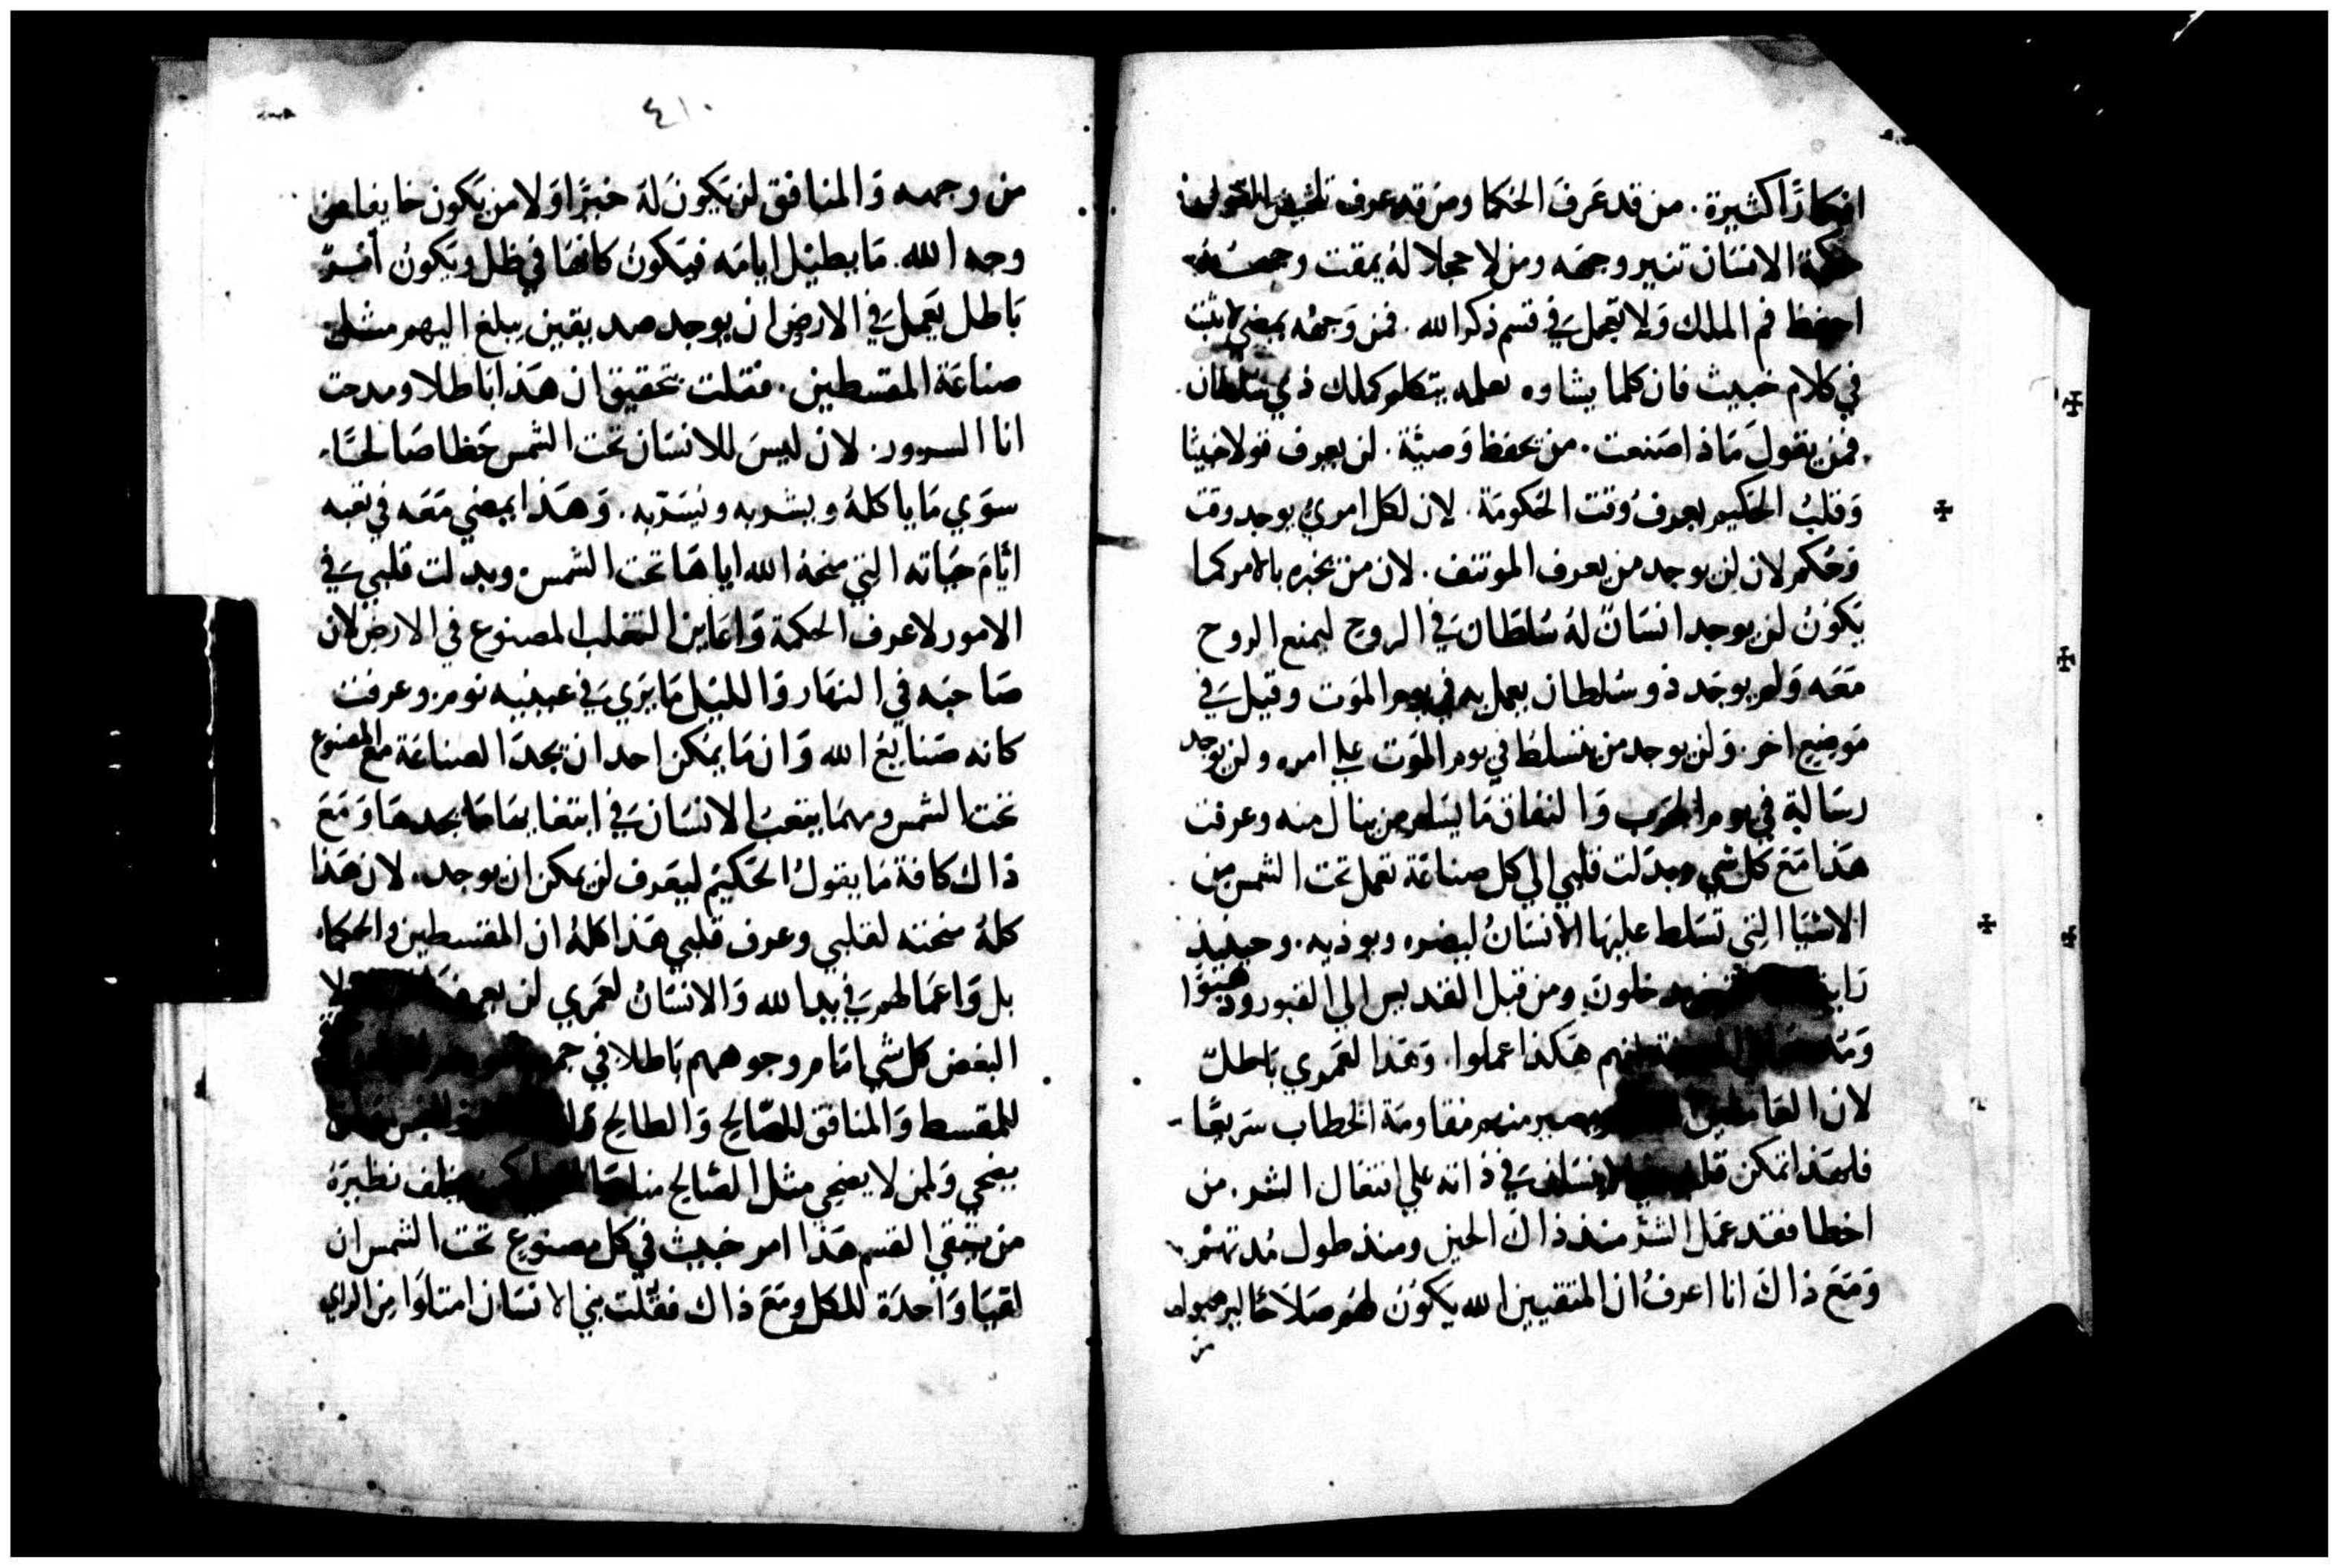 افكارًا كثيرة. من قد عَرفَ الحكما ومن قد عرف تلخيص القول
حكمة الانسَان تنير وجهَه ومن لا خجلا لهُ يمقت وجهـ
احفظ فم الملك وَلا تعجل فَي قسم ذكر الله. فمن وَجههُ يمضي لا يثبت
في كلام خبيث فان كلما يشاوه يعمله يتكلم كملك ذي سُلطان
فمن يقول مَاذا صَنعت. من يحفظ وَصيَّة. لن يعرف قولا خبيثا
وَقلبُ الحَكيم يعرفُ وَقت الحَكومَة. لان لكل امريُ يوجد وقت
وَحُكم لان لن يوجد من يعرف الموتنف. لان من يخبره بالامر كما
يَكوُنُ لن يوجد انسَانٌ لهُ سُلطَان فَي الروح ليمنع الروح
معَه وَلم يوجَد ذو سُلطان يعمل به في يوم الموَت وقيل فَي
مَوضِع اخر. وَلن يوجد من يتسلط في يوم الموَت علي امره ولن يوجد
رسَالة في يوم الحَرب وَالنفاق مَا يسَلم من ينال منه وعرفت
هَذا مَع كل شي وبدَلت قلبي الي كل صناعَة تعمل تحت الشمس من
الاشيَا التي تسَلط عليهَا الانسَانُ ليضره ويوذيه. وحينيذ
رَايت يدخلون ومن قبل القديس الي القبور ودهبُوا
وَمد لانهم هَكذا عملوا. وَهَذا لعَمري بَاطلٌ
لان العَاملين منهم مقاومَة الخطاب سَريعًا
فلهَذا تمكن قلب بني الانسَان فَي ذاته علي انتقال الشر. من
اخطا فقد عمَل الشرَّ منذ ذاكَ الحين ومنذ طول مُدتهمْ
وَمَعَ ذاكَ انا اعرفُ ان المتقيين الله يَكوُن لهُم صَلاحًا ليرهبوا
من
٤١٠
من وجهه وَالمنافق لن يَكون لهَ خيرًا وَلا من يَكون خايفا من
وجه الله. مَا يطيْل ايامَه فيَكونُ كانهَا في ظل ويَكونُ امْرٌ
بَاطل يَعمل فَي الارض ان يوجد صديقين يبلغ اليهم مثل
صناعَة المقسطين. فقلت بتحقيق ان هَذا بَاطلا ومدحت
انا السرور. لان ليسَ للانسَان تحت الشمس حَظا صَالحًا
سوَي مَا ياكلهُ ويشربه ويسَرّ به. وَهَذا يمضي مَعَه في تعبه
ايَّامَ حيَاته التي منحهُ الله اياهَا تحت الشمس. وبدلت قلبي فَي
الامور لاعرف الحكمَة وَاعَاين التقلب المصنوع في الارض لان
صَاحبَه في النهَار وَالليل مَا يرَي فَي عينيه نوم وعرفت
كانه صَنايعُ الله وَان مَا يمكن احد ان يجدَ الصناعَة مع المصنوع
تحت الشمس ومهمَا يتعبَ الانسَان فَي ابتغايهَا مَا يجدهَا وَمَعَ
ذاك كافة مَا يقولُ الحَكيمُ ليعَرف لن يمكن ان يوجد. لان هَذا
كلهُ منحته لقلبي وعرف قلبي هَذا كلهُ ان المقسطين والحكما
بل وَاعمَالهم فَي يدا لله وَالانسَانُ لعَمري لن يعرف ولا
البغض كل شي امَام وجوههم بَاطلا في
للمقسط وَالمنافق للصَّالح وَالطالح
يضحي وَلمن لا يضحي مثل الصَّالح يحلف نظيرَهُ
من يتقي القسم هَذا امر خبيث في كل مصنوع تحت الشمس ان
لقيَا وَاحدَة للكل ومَعَ ذاك فقلت بني الانسَان امتلوَا من الراي